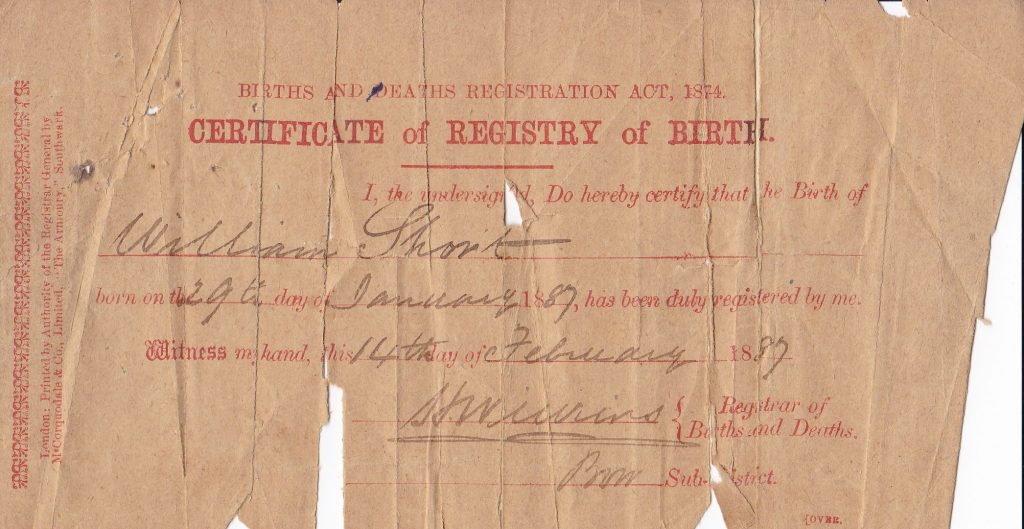 BIRTHS AND DEATHS REGISTRATION ACT, 1874.
CERTIFICATE of REGISTRY of BIRTH.
I, the undersigned, Do hereby certify that the Birth of
William Short
born on the 29th day of January 1887, has been duly registered by me.
Witness my hand, this 14th day of February 1887
Registrar of
Births and Deaths.
Bow Sub-district.
[OVER.
London: Printed by Authority of the Registrar General by
McCorquodale & Co., Limited, "The Armoury," Southwark.